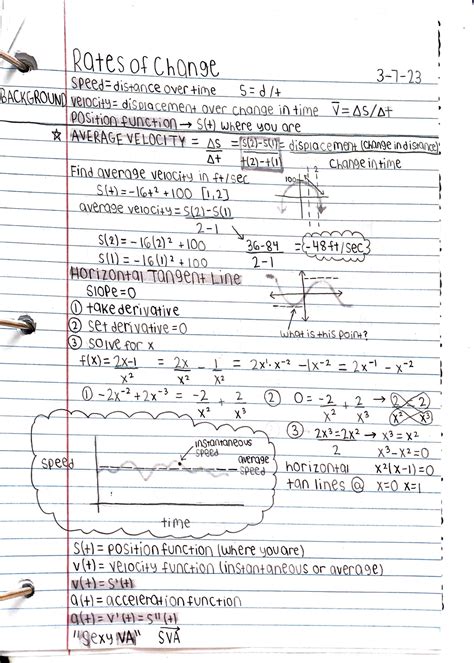 Rates of Change
3-7-23
speed = distance over time S = d/t
BACKGROUND velocity = displacement over change in time V̅ = ΔS/Δt
position function → s(t) where you are
☆ AVERAGE VELOCITY = ΔS/Δt = s(2)-s(1)/t(2)-t(1) = displacement (change in distance)/change in time
Find average velocity in ft/sec
s(t) = -16t² + 100 [1,2]
100
1 2
average velocity = s(2)-s(1)/2-1
s(2) = -16(2)² + 100
s(1) = -16(1)² + 100
36-84/2-1 = -48 ft/sec
Horizontal Tangent Line
slope = 0
① take derivative
② set derivative = 0
what is this point?
③ solve for x
f(x) = 2x-1/x² = 2x/x² - 1/x² = 2x¹·x⁻² - 1x⁻² = 2x⁻¹ - x⁻²
① -2x⁻² + 2x⁻³ = -2/x² + 2/x³
② 0 = -2/x² + 2/x³ → 2/x² 2/x³
③ 2x³ = 2x²/2 → x³ = x²
x³ - x² = 0
x²(x-1) = 0
horizontal tan lines @ x=0 x=1
speed
instantaneous speed
average speed
time
s(t) = position function (where you are)
v(t) = velocity function (instantaneous or average)
v(t) = s'(t)
a(t) = acceleration function
a(t) = v'(t) = s''(t)
"sexy VA" SVA